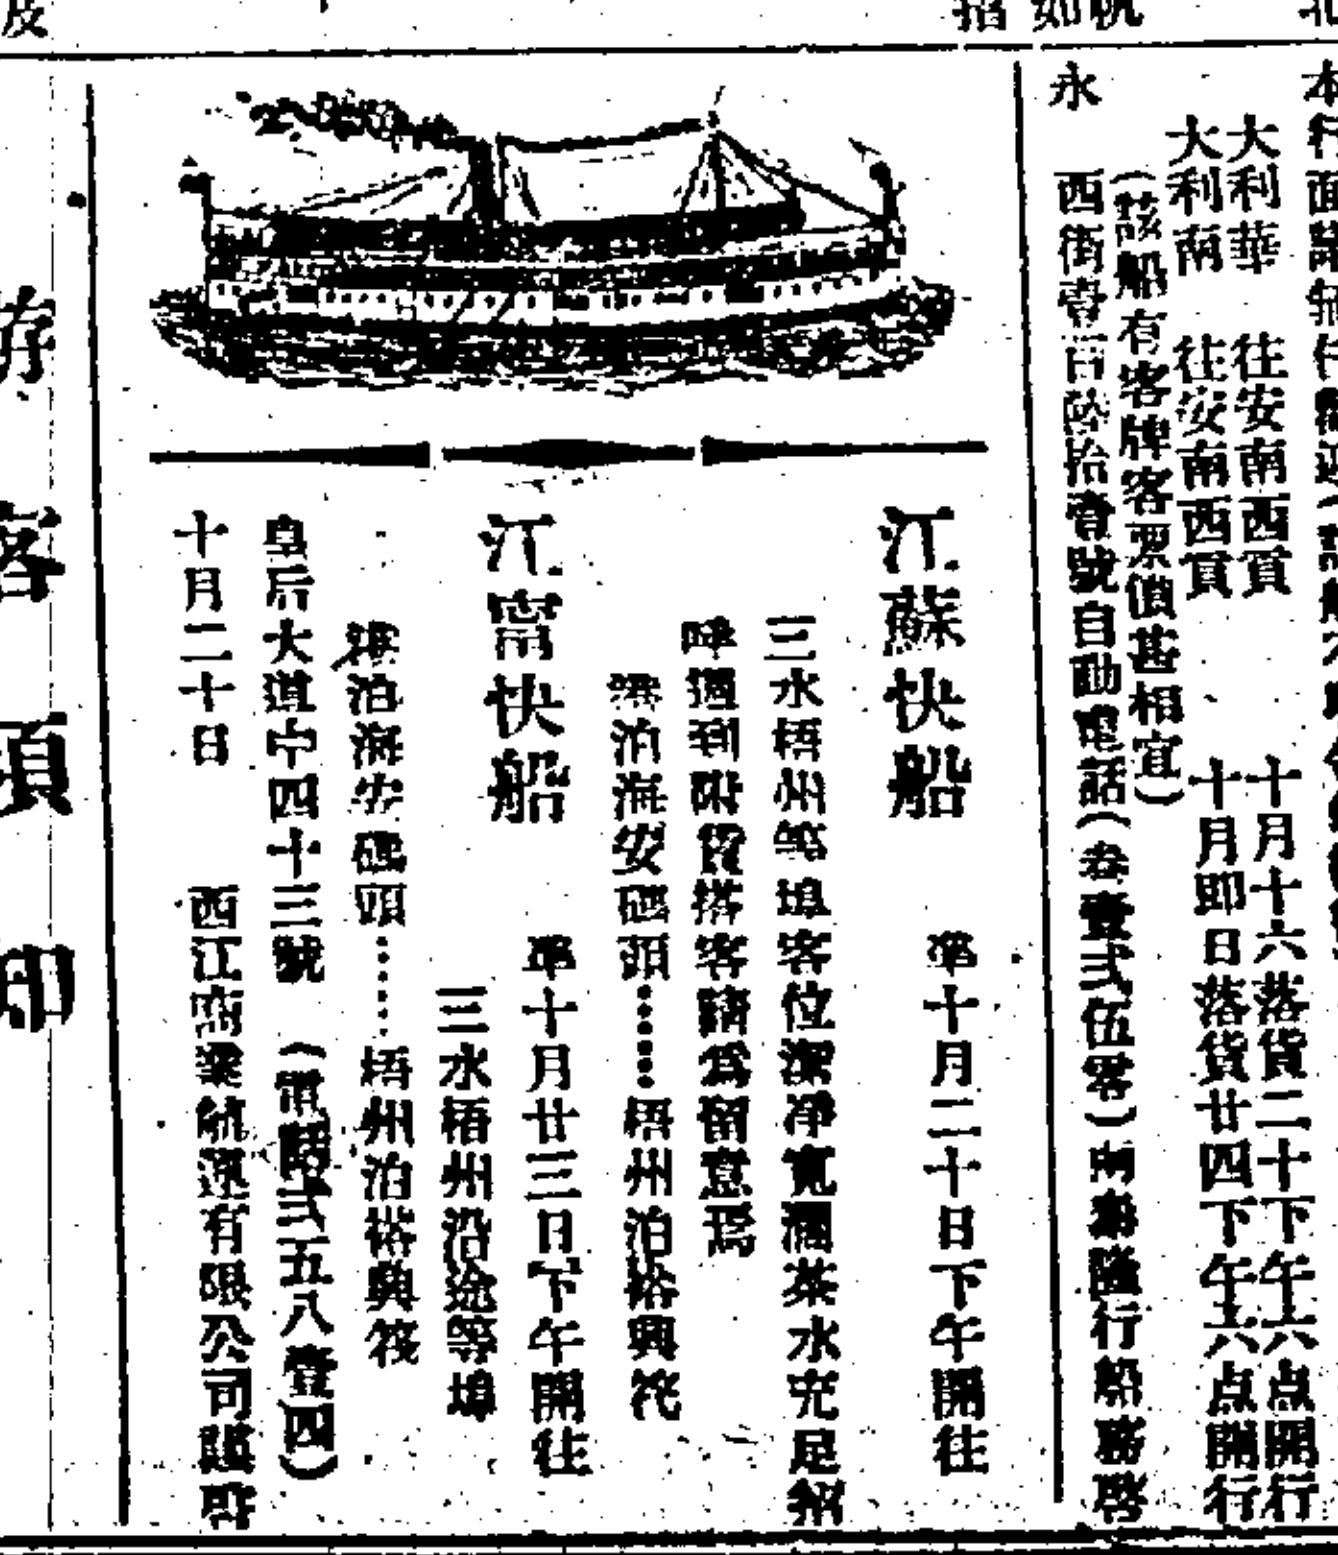 大利華　往安南西貢　十月十六落貨二十下午六点開行
大利南　往安南西貢　十月即日落貨廿四下午六点開行
(該船有客牌客票價甚相宜)
永　西街壹百陸拾壹號自動電話(叁壹弍伍零)南泰隆行船務啓
江蘇快船　準十月二十日下午開往
三水梧州等埠客位潔净寬濶茶水充足
週到附貨搭客請爲留意焉
港泊海安碼頭……梧州泊裕興筏
江甯快船　準十月廿三日下午開往
三水梧州沿途等埠
港泊海安碼頭……梧州泊裕興筏
皇后大道中四十三號　(電話弍五八壹四)
十月二十日　西江商業航運有限公司謹啓
游客須知